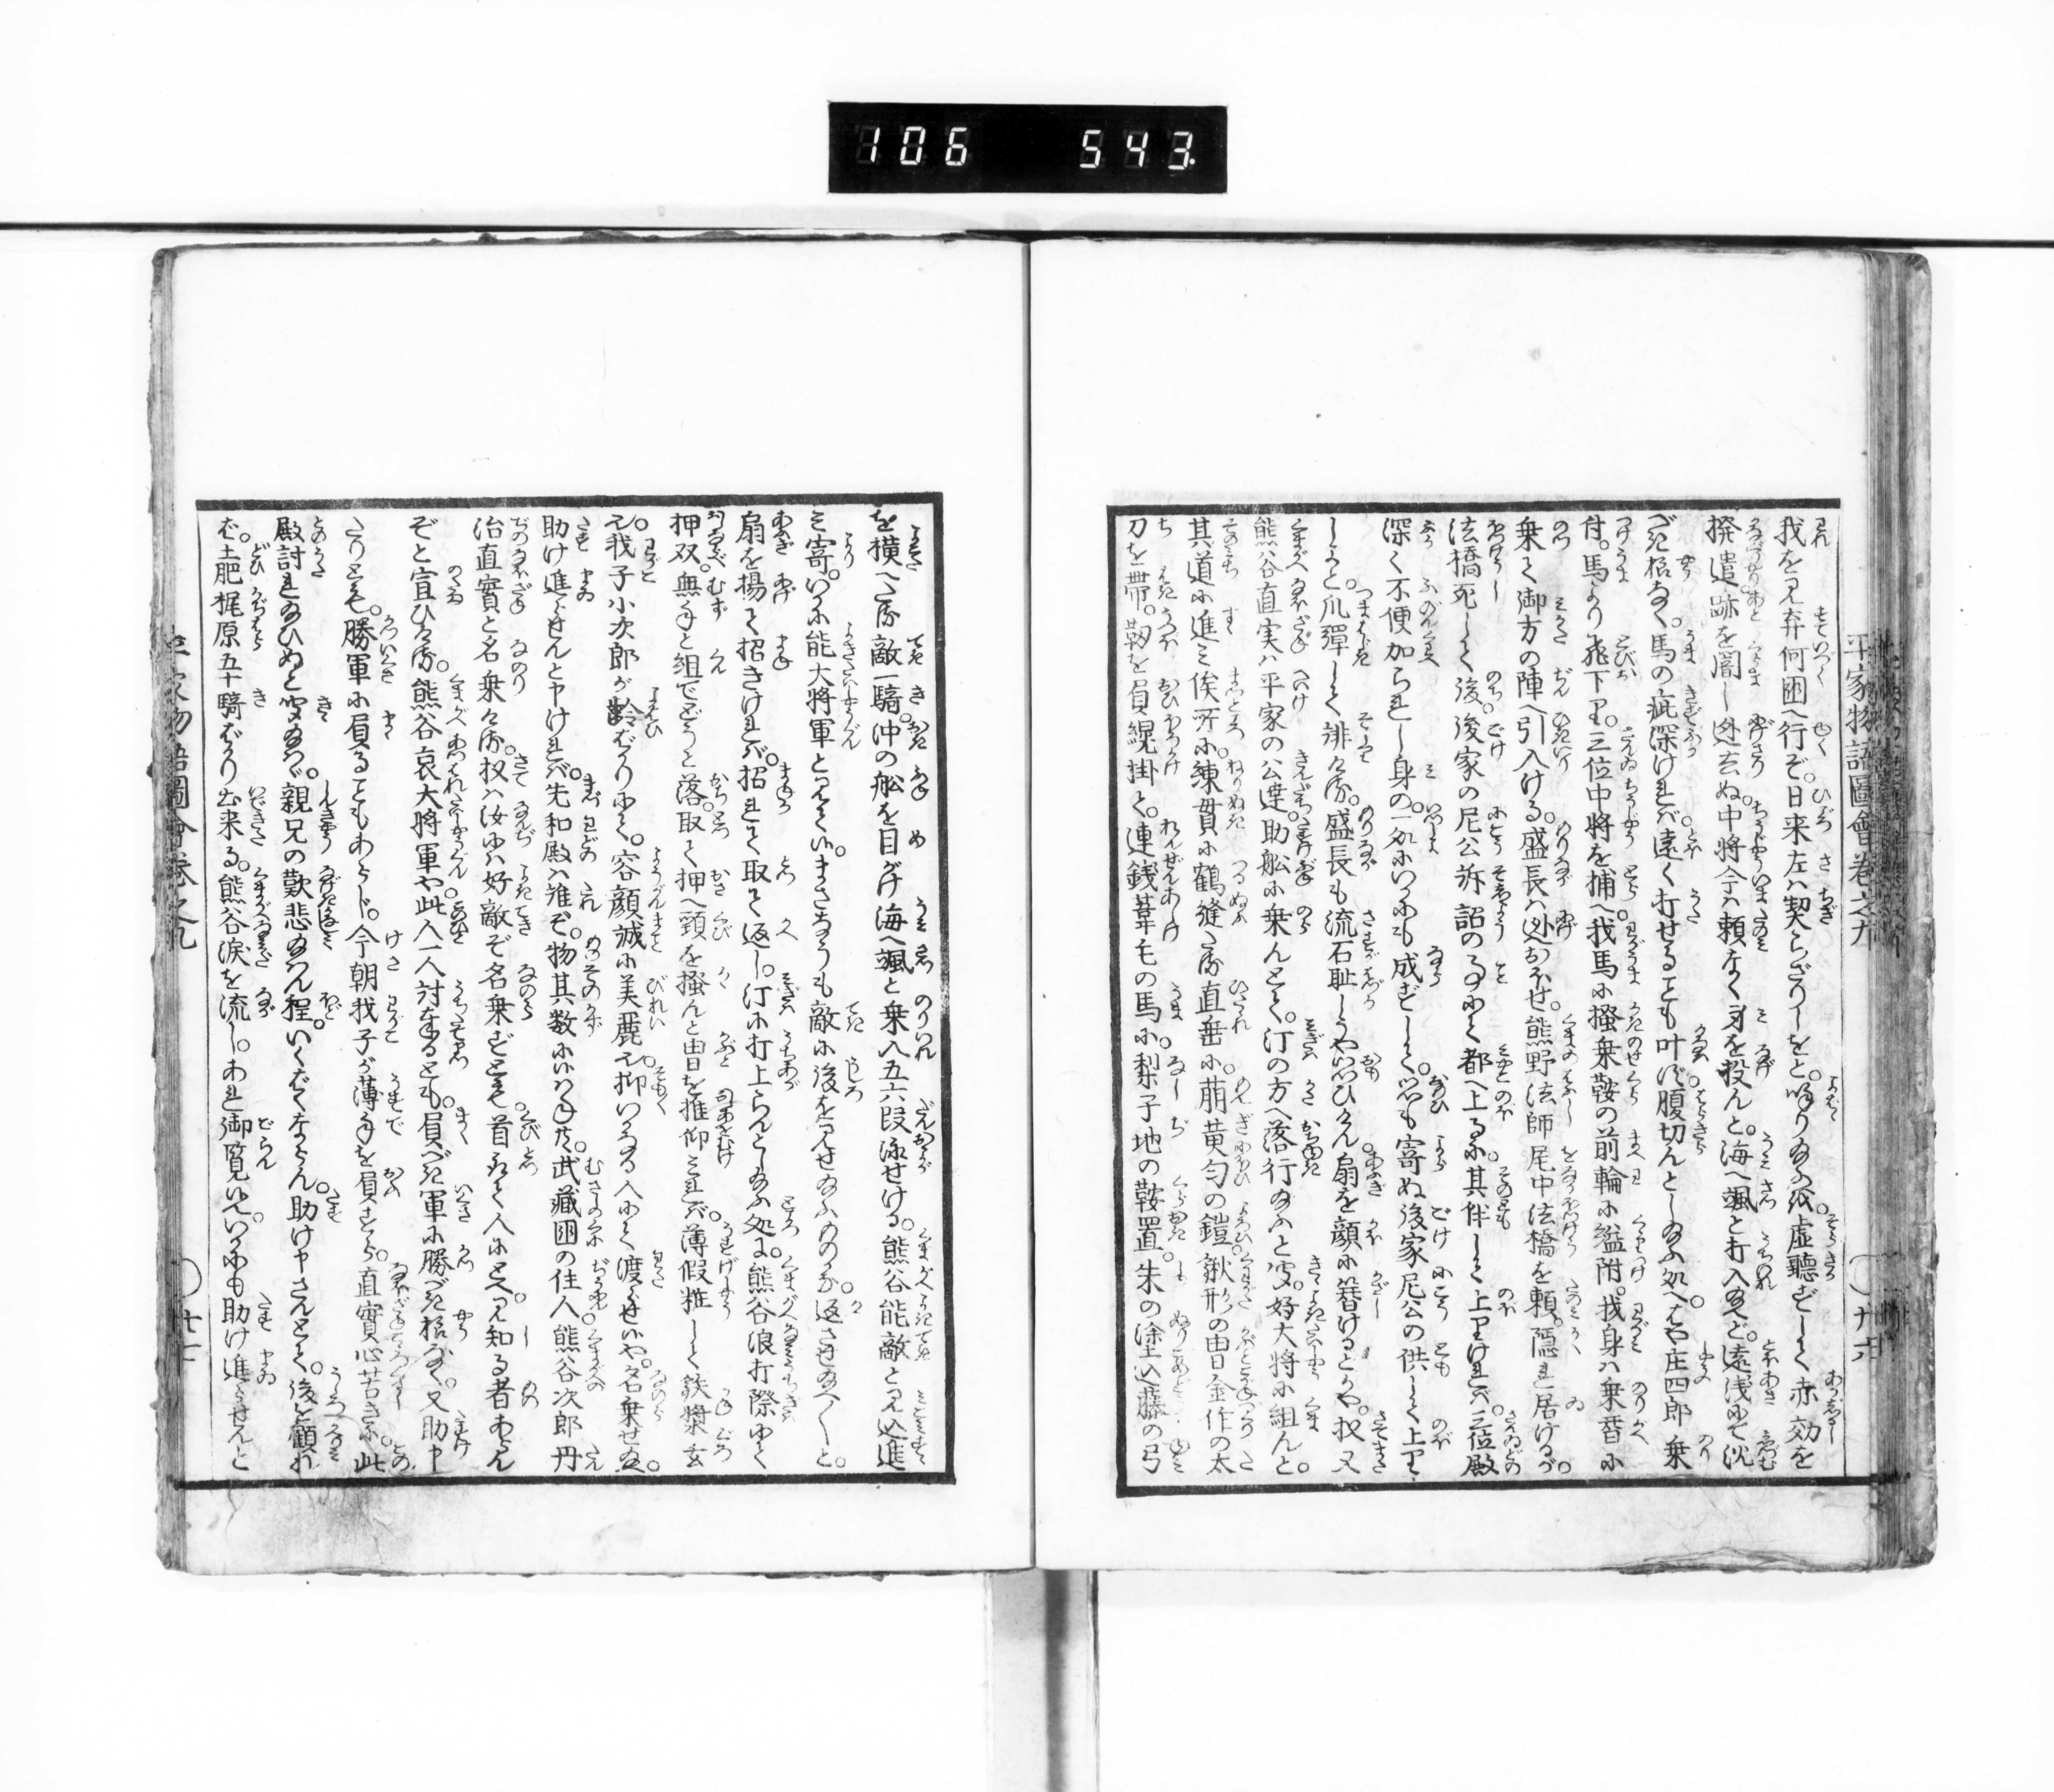 106 543.
平家物語圖會巻之九 〇廿六
我を見弃何囯へ行ぞ。日来左ハ契らざりしをと。喚り給へ𪜈。虚聽ずして赤効を
撥遣。跡を闇し迯去ぬ。中将今ハ頼なく身を投んと。海へ颯と打入給へど。遠浅にて沈
べき様なく。馬の疵深ければ遠く打せることも叶はず。腹切んとし給ふ処へはや庄四郎乗
付。馬より飛下り。三位中将を捕へ。我馬に掻乗鞍の前輪に縊附。我身ハ乗替に
乗て御方の陣へ引入ける。盛長ハ迯おほせ。熊野法師尾中法橋を頼。隠れ居けるが。
法橋死して後。後家の尼公訴詔の為にとて都へ上るに。其伴して上りければ。三位殿
深く不便加られし身の。一処にいかにも成ずして。思も寄ぬ後家尼公の供して上り
しよと。爪彈して誹ける。盛長も流石耻しうや思ひけん。扇を顔に簪けるとかや。扨又
熊谷直実ハ平家の公達。助舩に乗んとて。汀の方へ落行給ふと覚。好大将に組んと。
其道に進ミ俟所に。練貫に鶴縫たる直垂に。萠黄匂の鎧鍬形の甲金作の太
刀を帯。靭を負緄掛て。連銭葦毛の馬に梨子地の鞍置。朱の塗込藤の弓
を横へたる敵一騎。沖の舩を目がけ海へ颯と乗入五六段泳せける。熊谷能敵と見込進
ミ寄。いかに能大将軍とこそ見て候。まさなうも敵に後を見せ給ふものかな。返させ給へ〱と。
扇を揚て招きければ。招れて取て返し。汀に打上らんとし給ふ処を。熊谷浪打際にて
押双。無手と組でどうと落。取て押へ頸を掻んと甲を推仰ミれば。薄假粧して鉄漿玄
く。我子小次郎が齢ばかりにて。容顔誠に美麗也。抑いかなる人にて渡らせ候や。名乗せ給へ。
助け進らせんと申ければ。先和殿ハ誰ぞ。物其数に候ハねど。武藏囯の住人熊谷次郎丹
治直實と名乗ける。扨ハ汝にハ好敵ぞ名乗ずとも。首取て人にとへ。見知る者あらん
ぞと宣ひける。熊谷哀大将軍や此人一人討奉るとも。負べき軍に勝べき様なく。又助け申
たりとも。勝軍に負ることもあらじ。今朝我子が薄手を負すら。直實心苦きに。此
殿討れ給ひぬと聞給ハヾ。親兄の歎悲給ハん程。いくばくならん。助け申さんとて。後を顧れ
ば。土肥梶原五十騎ばかり出来る。熊谷涙を流し。あれ御覧候へ。いかにも助け進らせんと
〇廿七